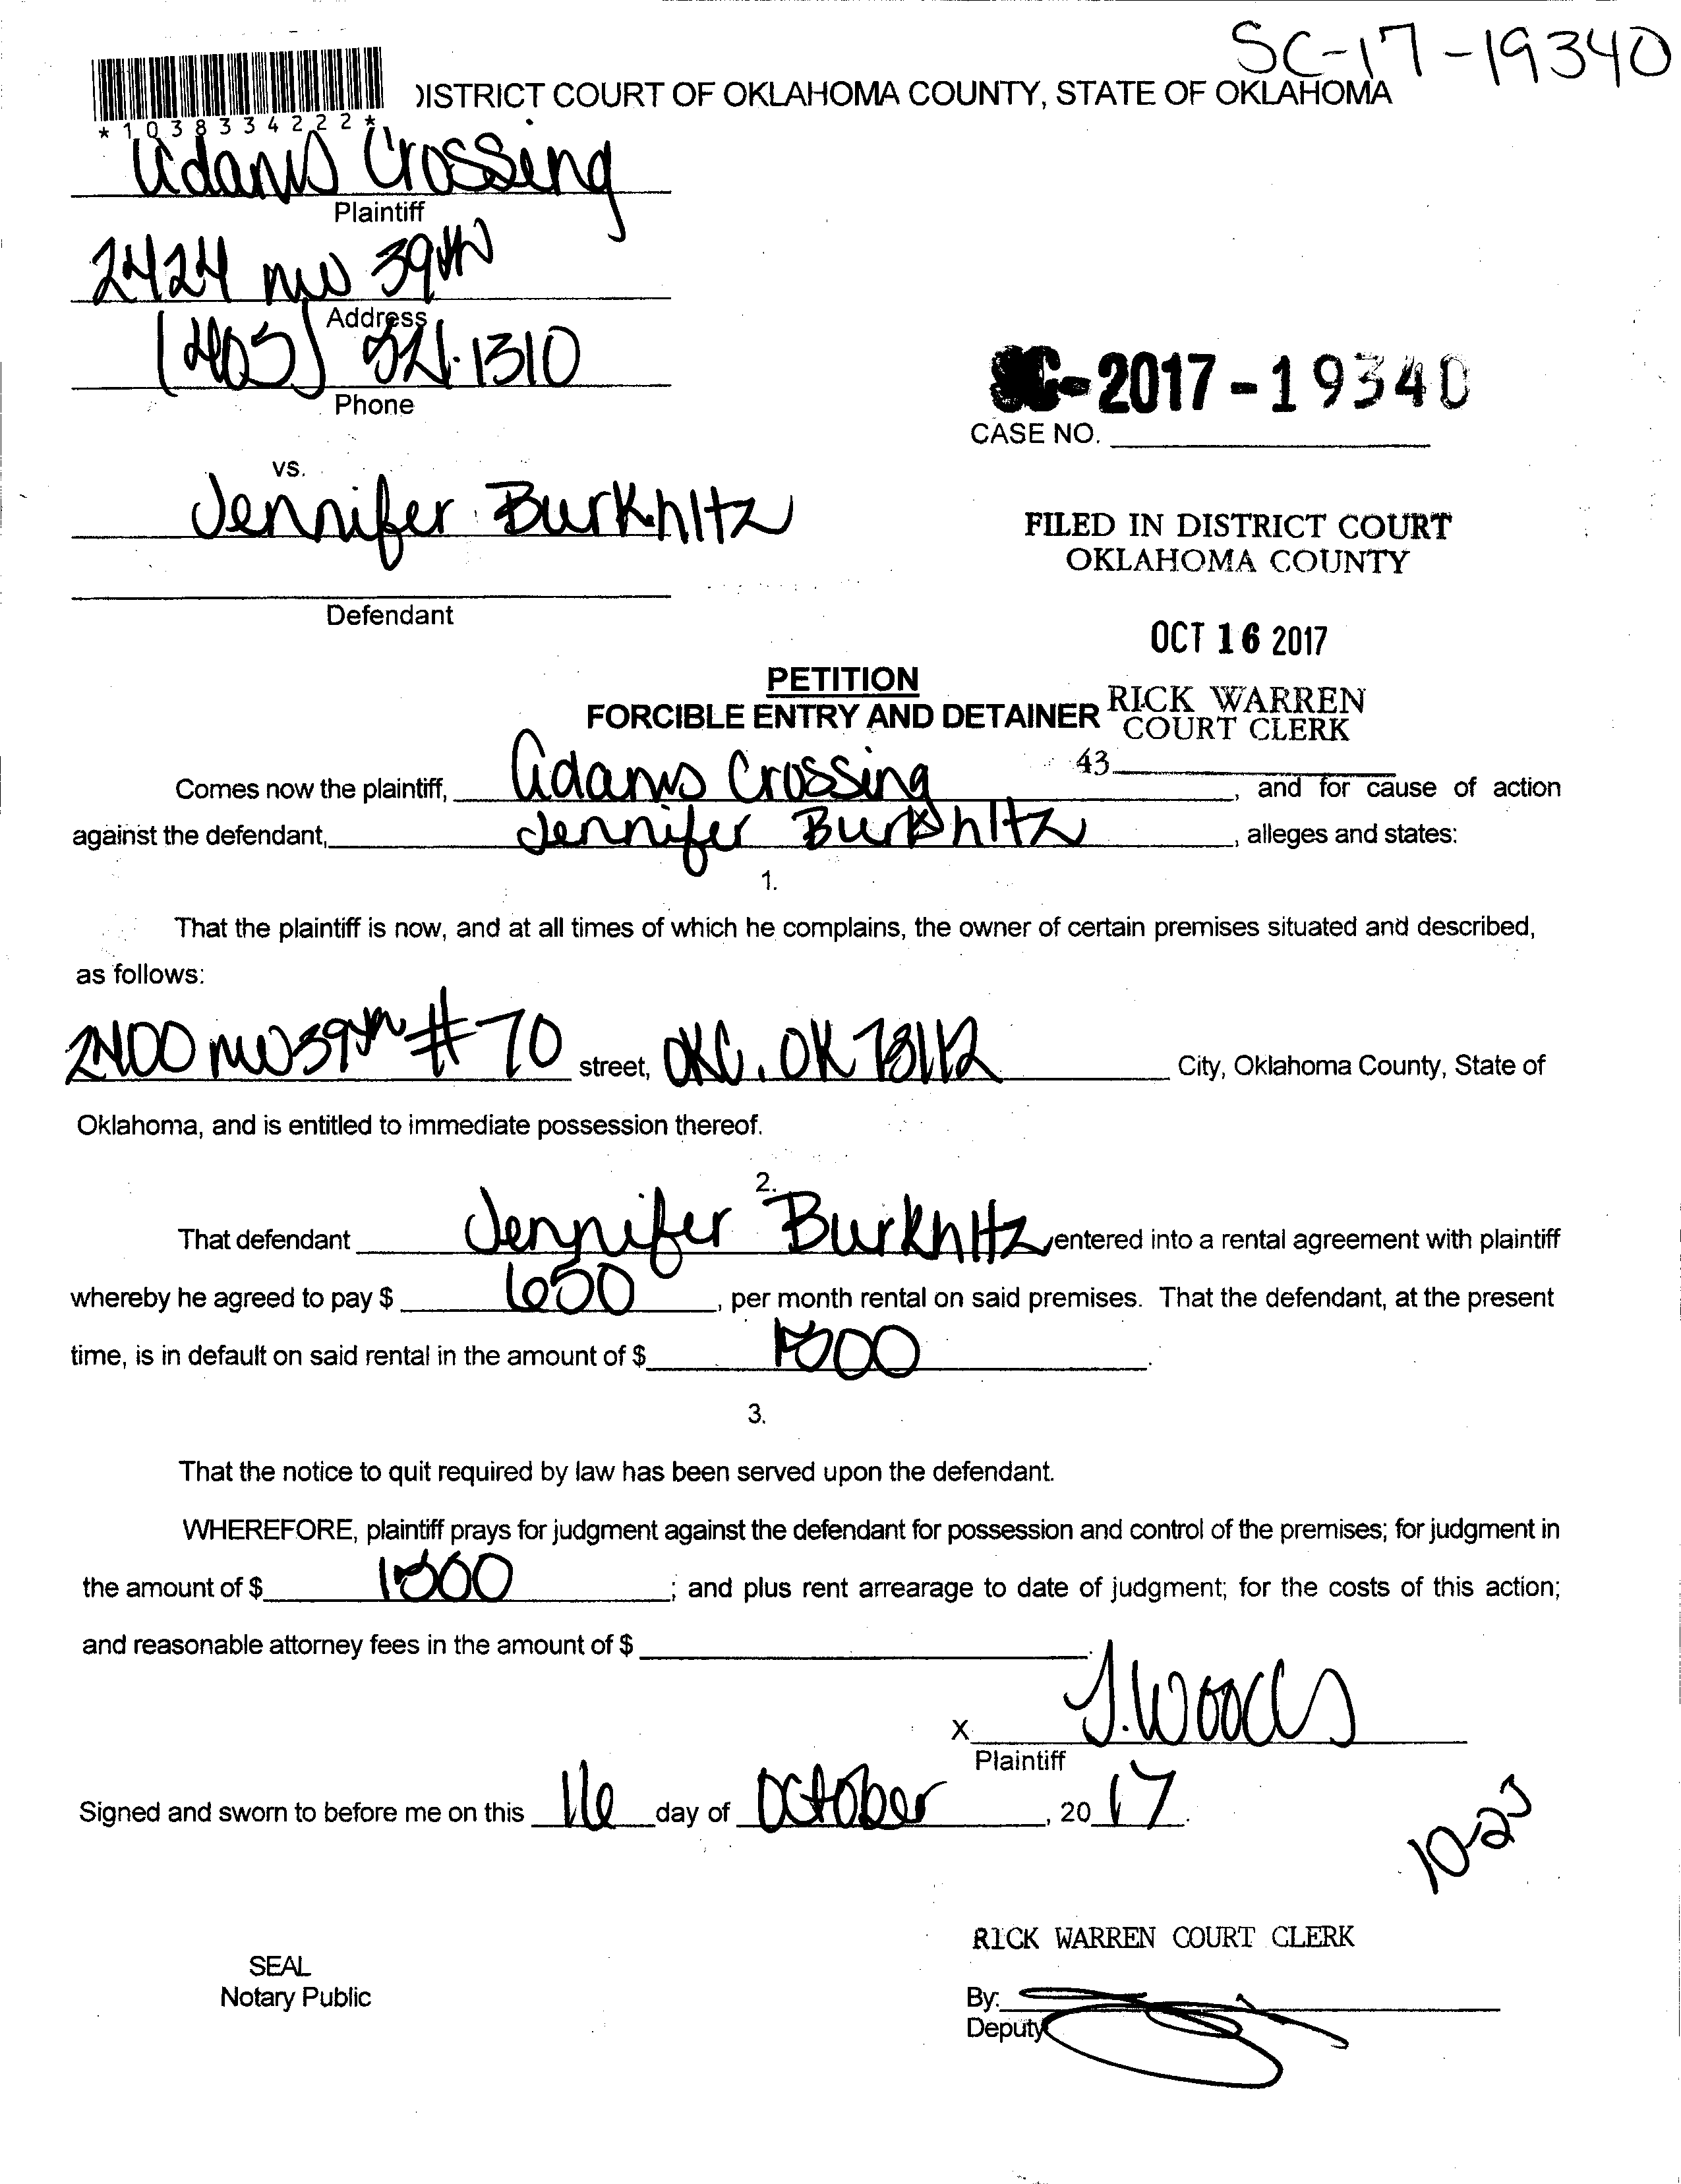 SC-17-19340
DISTRICT COURT OF OKLAHOMA COUNTY, STATE OF OKLAHOMA
*1038334222*
Adams Crossing
Plaintiff
2424 NW 39th
Address
(405) 521-1310
Phone
SC-2017-19340
CASE NO.
vs.
Jennifer Burkhltz
FILED IN DISTRICT COURT
OKLAHOMA COUNTY
Defendant
OCT 16 2017
PETITION
FORCIBLE ENTRY AND DETAINER
RICK WARREN
COURT CLERK
43
Comes now the plaintiff, Adams Crossing, and for cause of action
against the defendant, Jennifer Burkhltz, alleges and states:
1.
That the plaintiff is now, and at all times of which he complains, the owner of certain premises situated and described,
as follows:
2400 NW 39th #70 street, OKC, OK 73112 City, Oklahoma County, State of
Oklahoma, and is entitled to immediate possession thereof.
2.
That defendant Jennifer Burkhltz, entered into a rental agreement with plaintiff
whereby he agreed to pay $ 650, per month rental on said premises. That the defendant, at the present
time, is in default on said rental in the amount of $ .
3.
That the notice to quit required by law has been served upon the defendant.
WHEREFORE, plaintiff prays for judgment against the defendant for possession and control of the premises; for judgment in
the amount of $ ; and plus rent arrearage to date of judgment; for the costs of this action;
and reasonable attorney fees in the amount of $ .
X J. Woods
Plaintiff
Signed and sworn to before me on this 16 day of October, 2017.
10-23
RICK WARREN COURT CLERK
SEAL
Notary Public
By:
Deputy